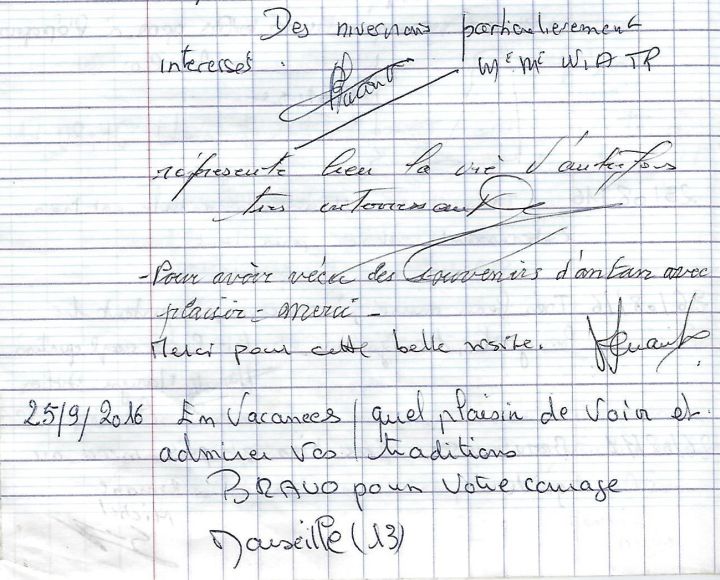 Des nivernais particulièrement
interessés.
Mr Me
représente bien la vie d'autrefois
très interessant
- Pour avoir vécu des souvenirs d'antan avec
plaisir - merci -
Merci pour cette belle visite.
25/9/2016 En Vacances quel plaisir de Voir et
admirer vos traditions
BRAVO pour votre courage
Marseille (13)